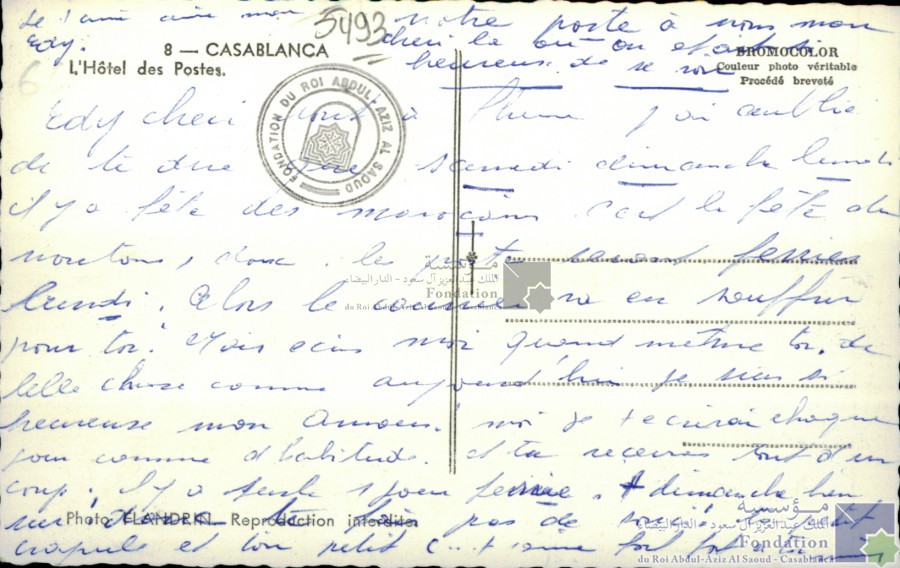 Je t'aime mon
Edy.
5493
notre poste à nous mon
cheri la où on est
heureuse de se voir
8 — CASABLANCA
L'Hôtel des Postes.
BROMOCOLOR
Couleur photo véritable
Procédé breveté
FONDATION DU ROI ABDUL-AZIZ AL SAOUD
Edy cheri j'ai oublié
de te dire que samedi dimanche lundi
il y a fête des marocains c'est la fête du
moutons, donc les seront feries
lundi. Alors le courrier va en souffrir
pour toi. Mais ecris moi quand même toi, de
belle chose comme aujourd'hui je suis si
heureuse mon Amour. moi je t ecrirai chaque
jour comme d'habitude. et tu recevras tout d'un
coup. il y a jour ferrie, dimanche bien
pas de
crapule et ton petit c...t aime
Photo FLANDRIN. Reproduction interdite.
مؤسسة
الملك عبد العزيز آل سعود - الدار البيضاء
Fondation
du Roi Abdul-Aziz Al Saoud - Casablanca
مؤسسة
الملك عبد العزيز آل سعود - الدار البيضاء
Fondation
du Roi Abdul-Aziz Al Saoud - Casablanca